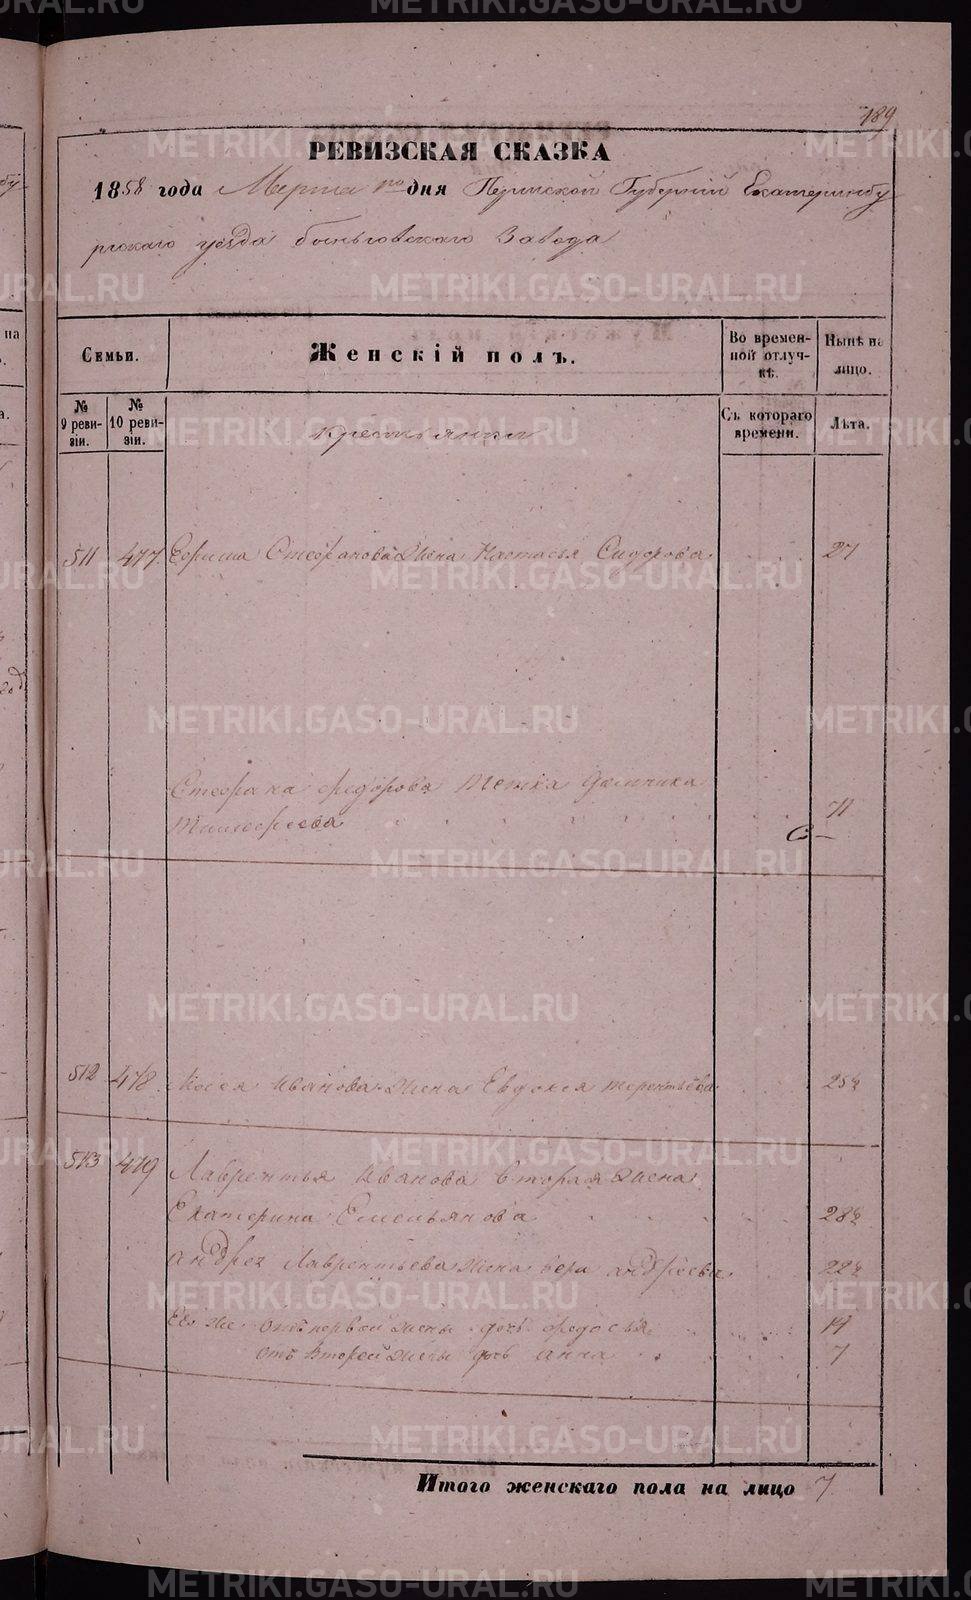 189
РЕВИЗСКАЯ СКАЗКА
1858 года Марта по дня Пермской Губерніи Екатеринбу
ргскаго уезда быньговскаго Завода
Семьи.
Женскій полъ.
Во времен-
ной отлуч-
кѣ.
Нынѣ на
лицо.
№
9 реви-
зіи.
№
10 реви-
зіи.
крестьянки
Съ котораго
времени.
Лѣта.
511 477 Ефима Стефанова жена Настасья Сидорова 27
Стефана федорова тетка
Тимофеева 71
512 478 Иванова жена Евдокея терентьева 25½
513 479 Лаврентья Иванова вторая жена
Екатерина Емельянова 28½
андрея Лаврентьева жена вера андреева 22½
Ево же отъ первой жены дочь федосья 14
отъ второй жены дочь анна 7
Итого женскаго пола на лицо 7
METRIKI.GASO-URAL.RU